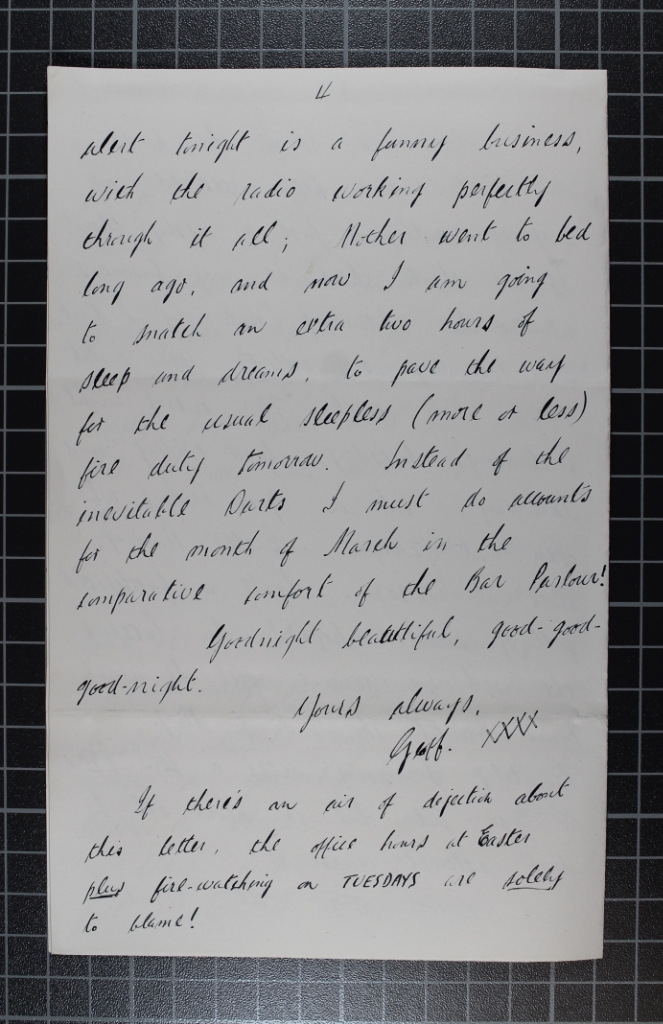 4
alert tonight is a funny business,
with the radio working perfectly
through it all; Mother went to bed
long ago, and now I am going
to snatch an extra two hours of
sleep and dreams, to pave the way
for the usual sleepless (more or less)
fire duty tomorrow. Instead of the
inevitable Darts I must do accounts
for the month of March in the
comparative comfort of the Bar Parlour!
Goodnight beautiful, good-good-
good-night.
Yours always,
Geoff. XXXX
If there's an air of dejection about
this letter, the office hours at Easter
plus fire-watching on TUESDAYS are solely
to blame!